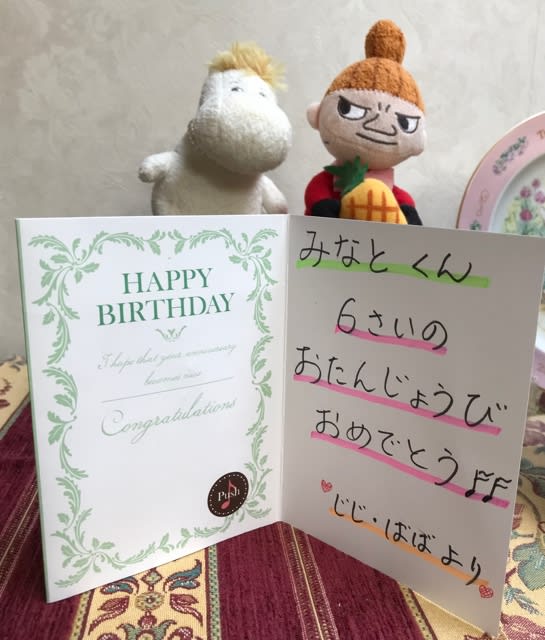 HAPPY
BIRTHDAY
I hope that your anniversary
becomes nice
Congratulations
Push
みなとくん
6さいの
おたんじょうび
おめでとう♫
じじ・ばばより